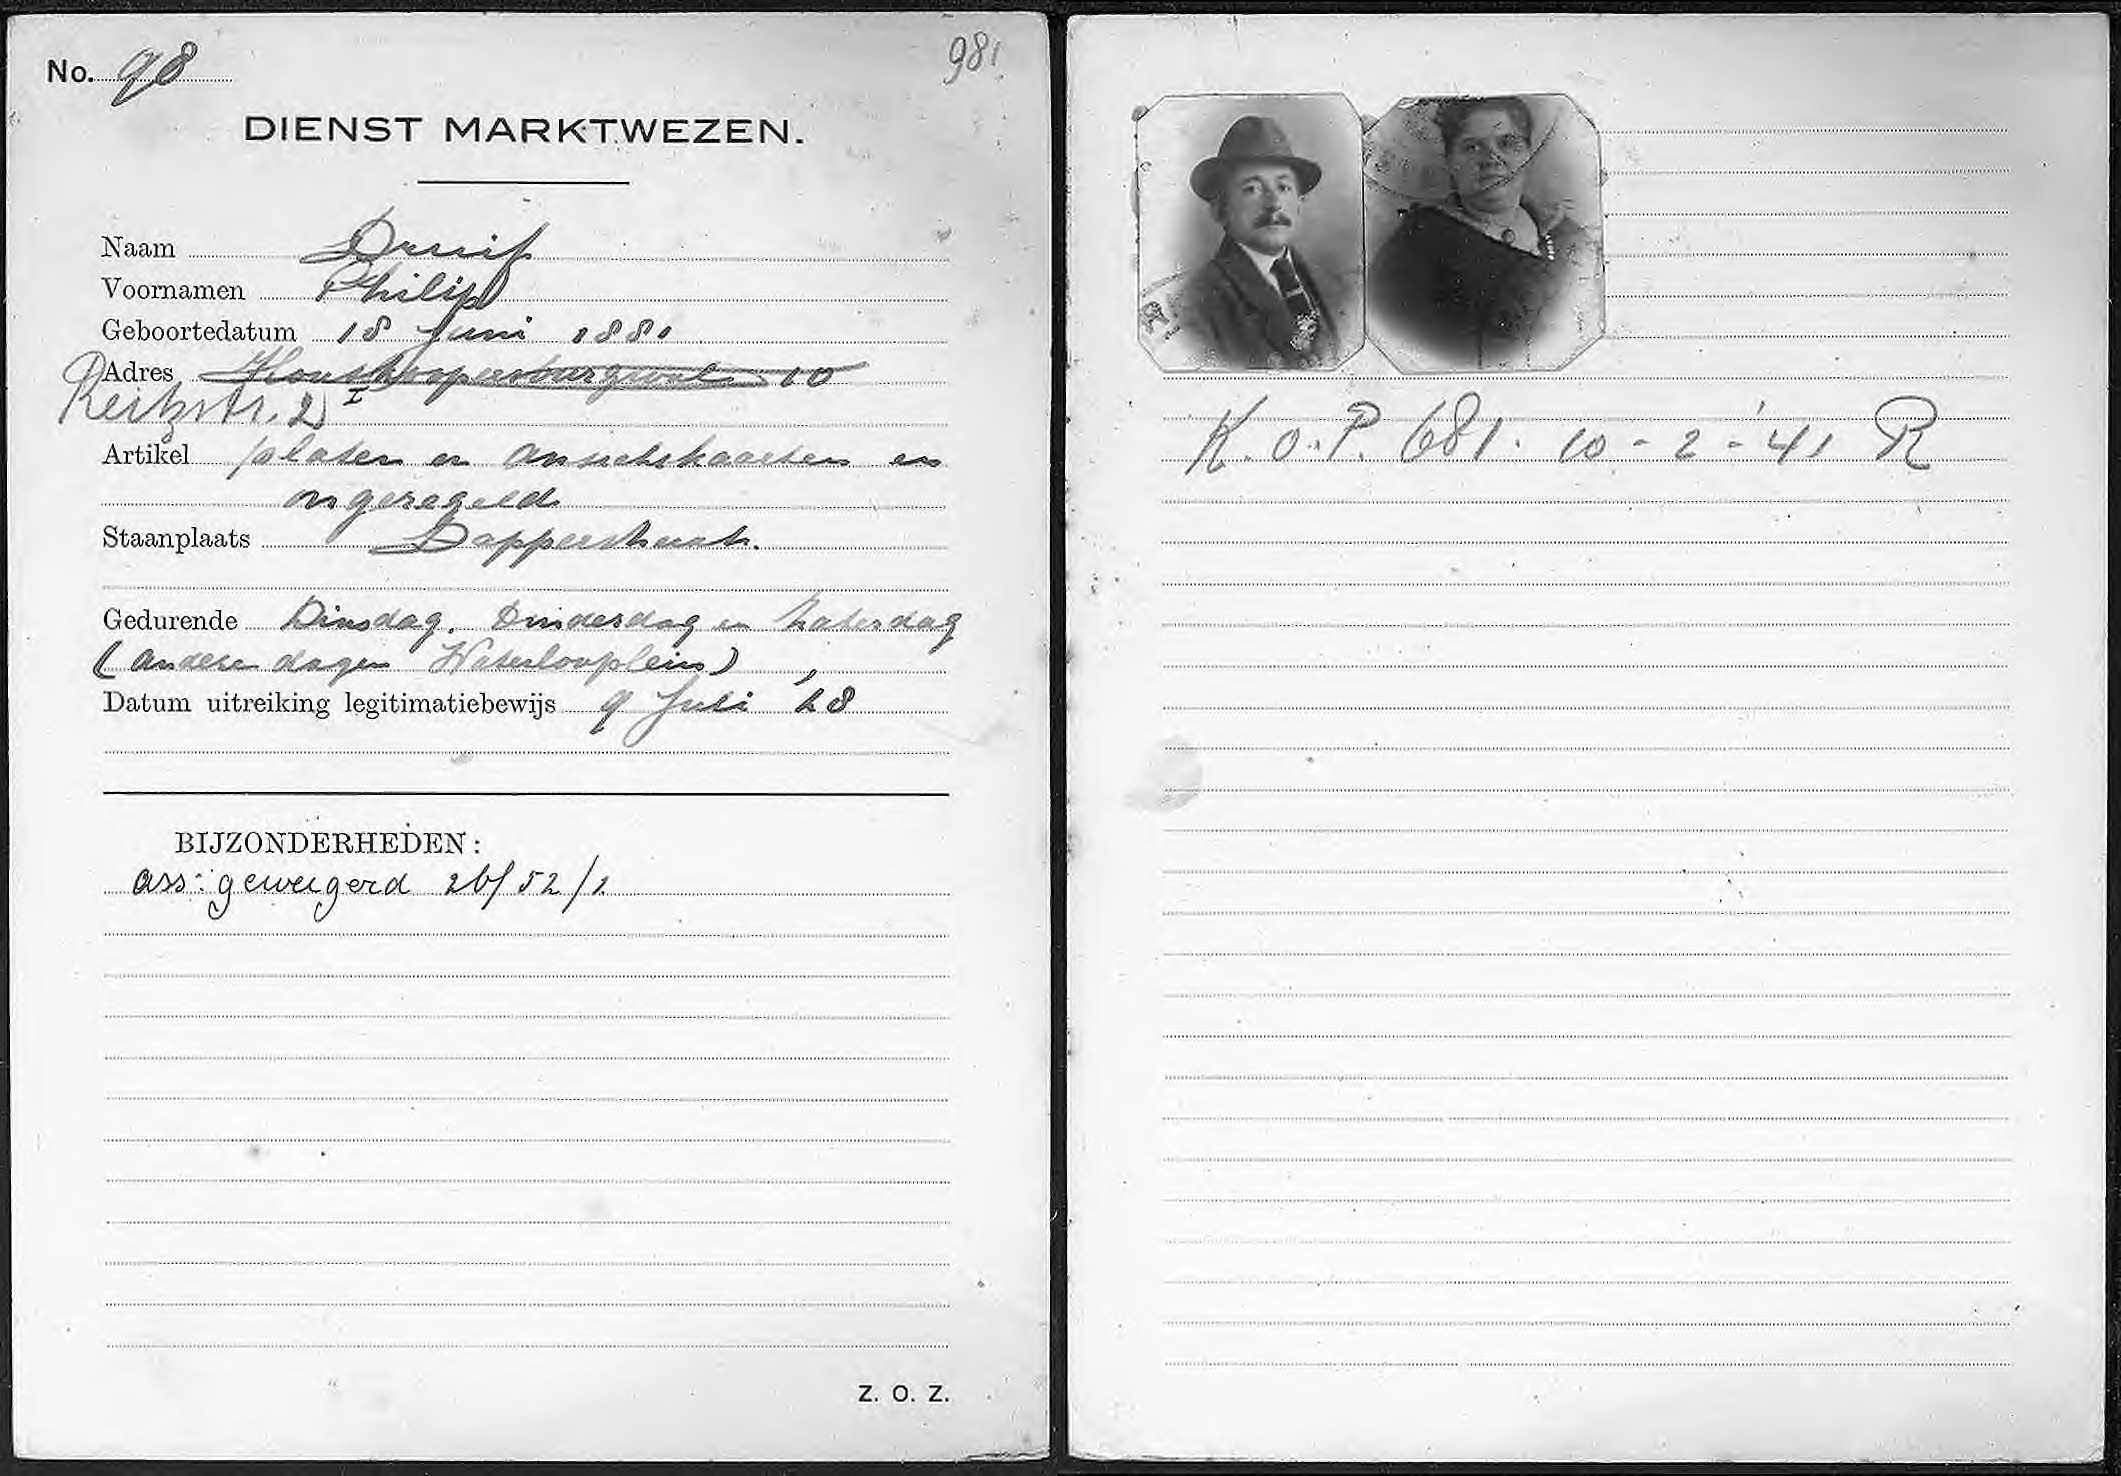 No. 98
981
DIENST MARKTWEZEN.
Naam Druif
Voornamen Philip
Geboortedatum 18 Juni 1881
Adres Houtkopersburgwal 10
Reitzstr. 2 I
Artikel platen en ansichtskaarten en
ongeregeld
Staanplaats Dapperstraat.
Gedurende Dinsdag, Donderdag en Zaterdag
(andere dagen Waterlooplein)
Datum uitreiking legitimatiebewijs 9 Juli '28
BIJZONDERHEDEN:
ass: geweigerd 26/52/1
Z. O. Z.
K.o.P. 681. 10-2-'41 R